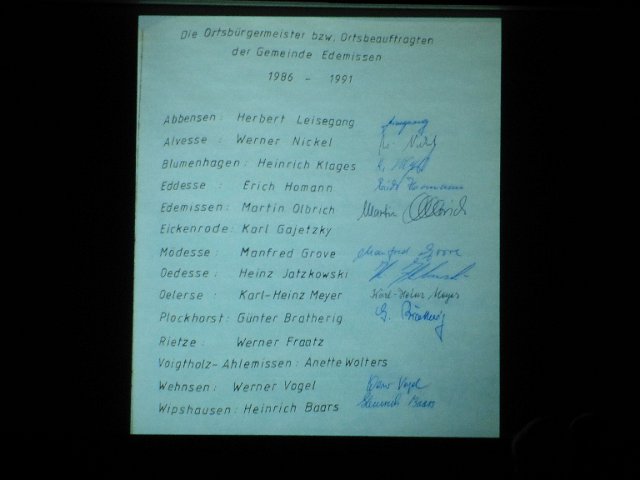 Die Ortsbürgermeister bzw. Ortsbeauftragten
der Gemeinde Edemissen
1986 - 1991
Abbensen: Herbert Leisegang
Alvesse: Werner Nickel
Blumenhagen: Heinrich Klages
Eddesse: Erich Homann
Edemissen: Martin Olbrich Martin Olbrich
Eickenrode: Karl Gajetzky
Mödesse: Manfred Grove Manfred Grove
Oedesse: Heinz Jatzkowski
Oelerse: Karl-Heinz Meyer Karl-Heinz Meyer
Plockhorst: Günter Bratherig
Rietze: Werner Fraatz
Voigtholz-Ahlemissen: Anette Wolters
Wehnsen: Werner Vogel Vogel
Wipshausen: Heinrich Baars Heinrich Baars